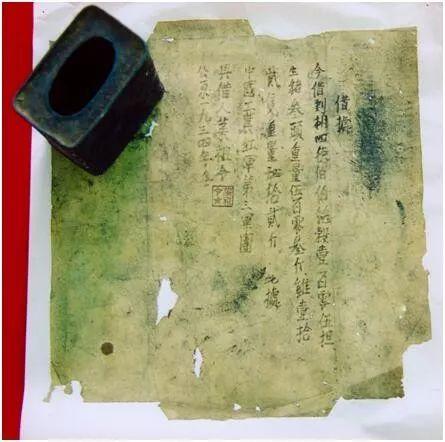 借據
今借到胡四德伯伯稻穀壹百零伍担
生豬叁頭重量伍百零叁斤雞壹拾
貳隻重量肆拾貳斤 此據
中國工農紅軍第三軍團
具借 葉祖令
公元一九三四年冬